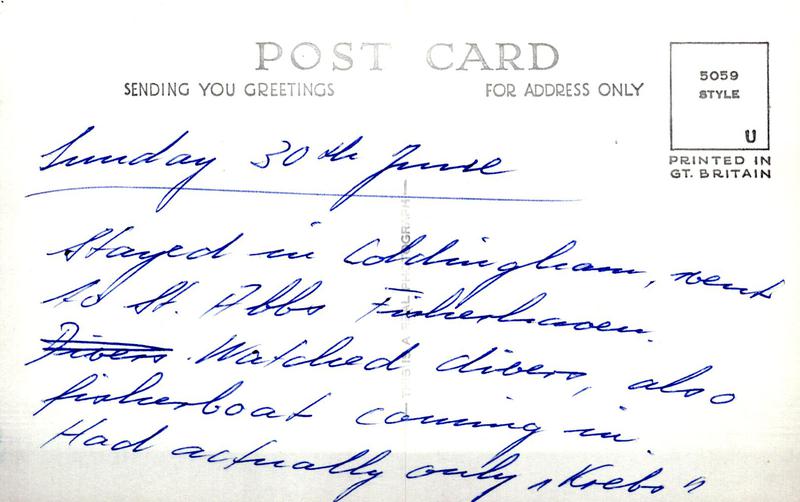 POST CARD
SENDING YOU GREETINGS
FOR ADDRESS ONLY
5059
STYLE
U
PRINTED IN
GT. BRITAIN
Sunday 30th June
Stayed in Coldingham, went
to St. Abbs Fisherhaven.
Divers Watched divers, also
fisherboat coming in.
Had actually only „Krebs"